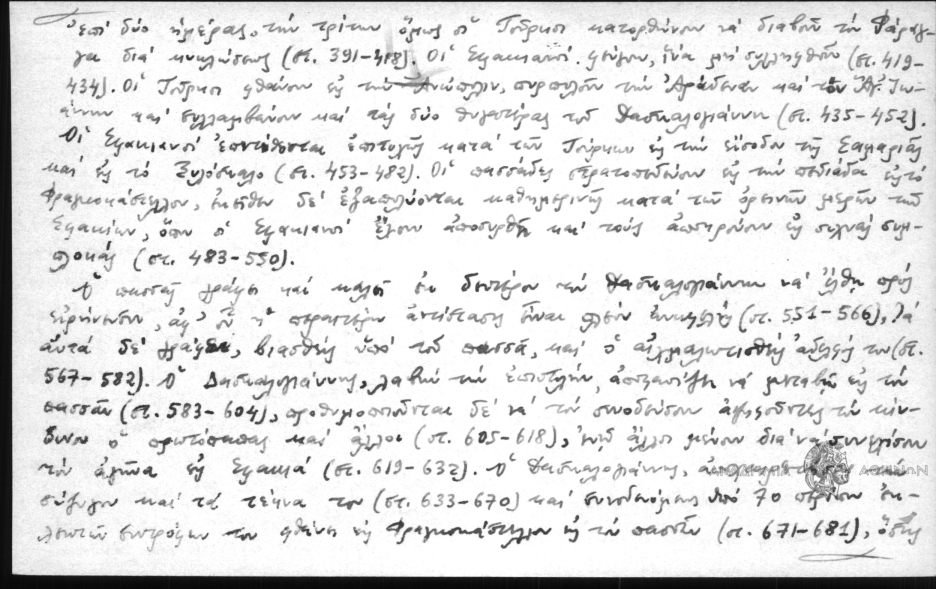 ἐπὶ δύο ἡμέρας, τὴν τρίτην ὅμως οἱ Τοῦρκοι κατορθώνουν νὰ διαβοῦν τὸ Φαράγ-
γι διὰ κυκλώσεως (στ. 391-418). Οἱ Σφακιανοὶ φεύγουν, ἵνα μὴ συλληφθοῦν (στ. 419-
434). Οἱ Τοῦρκοι φθάνουν εἰς τὴν Ἀνώπολιν, πυρπολοῦν τὴν Ἀράδεναν καὶ τὸν Ἁγ. Ἰω-
άννην καὶ συλλαμβάνουν καὶ τὰς δύο θυγατέρας τοῦ Δασκαλογιάννη (στ. 435-452).
Οἱ Σφακιανοὶ ἐπιτίθενται ἐπιτυχῶς κατὰ τῶν Τούρκων εἰς τὴν εἴσοδον τῆς Σαμαριᾶς
καὶ εἰς τὸ Ξυλόσκαλο (στ. 453-482). Οἱ πασσάδες στρατοπεδεύουν εἰς τὴν πεδιάδα εἰς τὸ
Φραγκοκάστελλον, ἐκεῖθεν δὲ ἐξαπολύονται καθημερινῶς κατὰ τῶν ὀρεινῶν μερῶν τῶν
Σφακίων, ὅπου οἱ Σφακιανοὶ ἔχουν ἀποσυρθῆ καὶ τοὺς εἰς συχνὰς συμ-
πλοκάς (στ. 483-550).
Ὁ πασσᾶς γράφει καὶ καλεῖ ἐκ δευτέρου τὸν Δασκαλογιάννην νὰ ἔλθῃ πρὸς
εἰρήνευσιν, ἀφ' οὗ ἡ περαιτέρω ἀντίστασις εἶναι πλέον (στ. 551-566), τὰ
αὐτὰ δὲ γράφει, βιασθεὶς ὑπὸ τοῦ πασσᾶ, καὶ ὁ αἰχμαλωτισθεὶς ἀδελφός του (στ.
567-582). Ὁ Δασκαλογιάννης, λαβὼν τὴν ἐπιστολήν, ἀποφασίζει νὰ μεταβῇ εἰς τὸν
πασσᾶν (στ. 583-604), προθυμοποιοῦνται δὲ νὰ τὸν συνοδεύσουν ἀψηφοῦντες τὸν κίν-
δυνον ὁ πρωτόπαπας καὶ ἄλλοι (στ. 605-618), ἐνῷ ἄλλοι μένουν διὰ νὰ συνεχίσουν
τὸν ἀγῶνα εἰς Σφακιά (στ. 619-632). Ὁ Δασκαλογιάννης, τὴν
σύζυγον καὶ τὰ τέκνα του (στ. 633-670) καὶ συνοδευόμενος ὑπὸ 70 περίπου ἐκ-
λεκτῶν συντρόφων του φθάνει εἰς Φραγκοκάστελλον εἰς τὸν πασσᾶν (στ. 671-681), ὅστις
ΑΚΑΔΗΜΙΑ ΑΘΗΝΩΝ